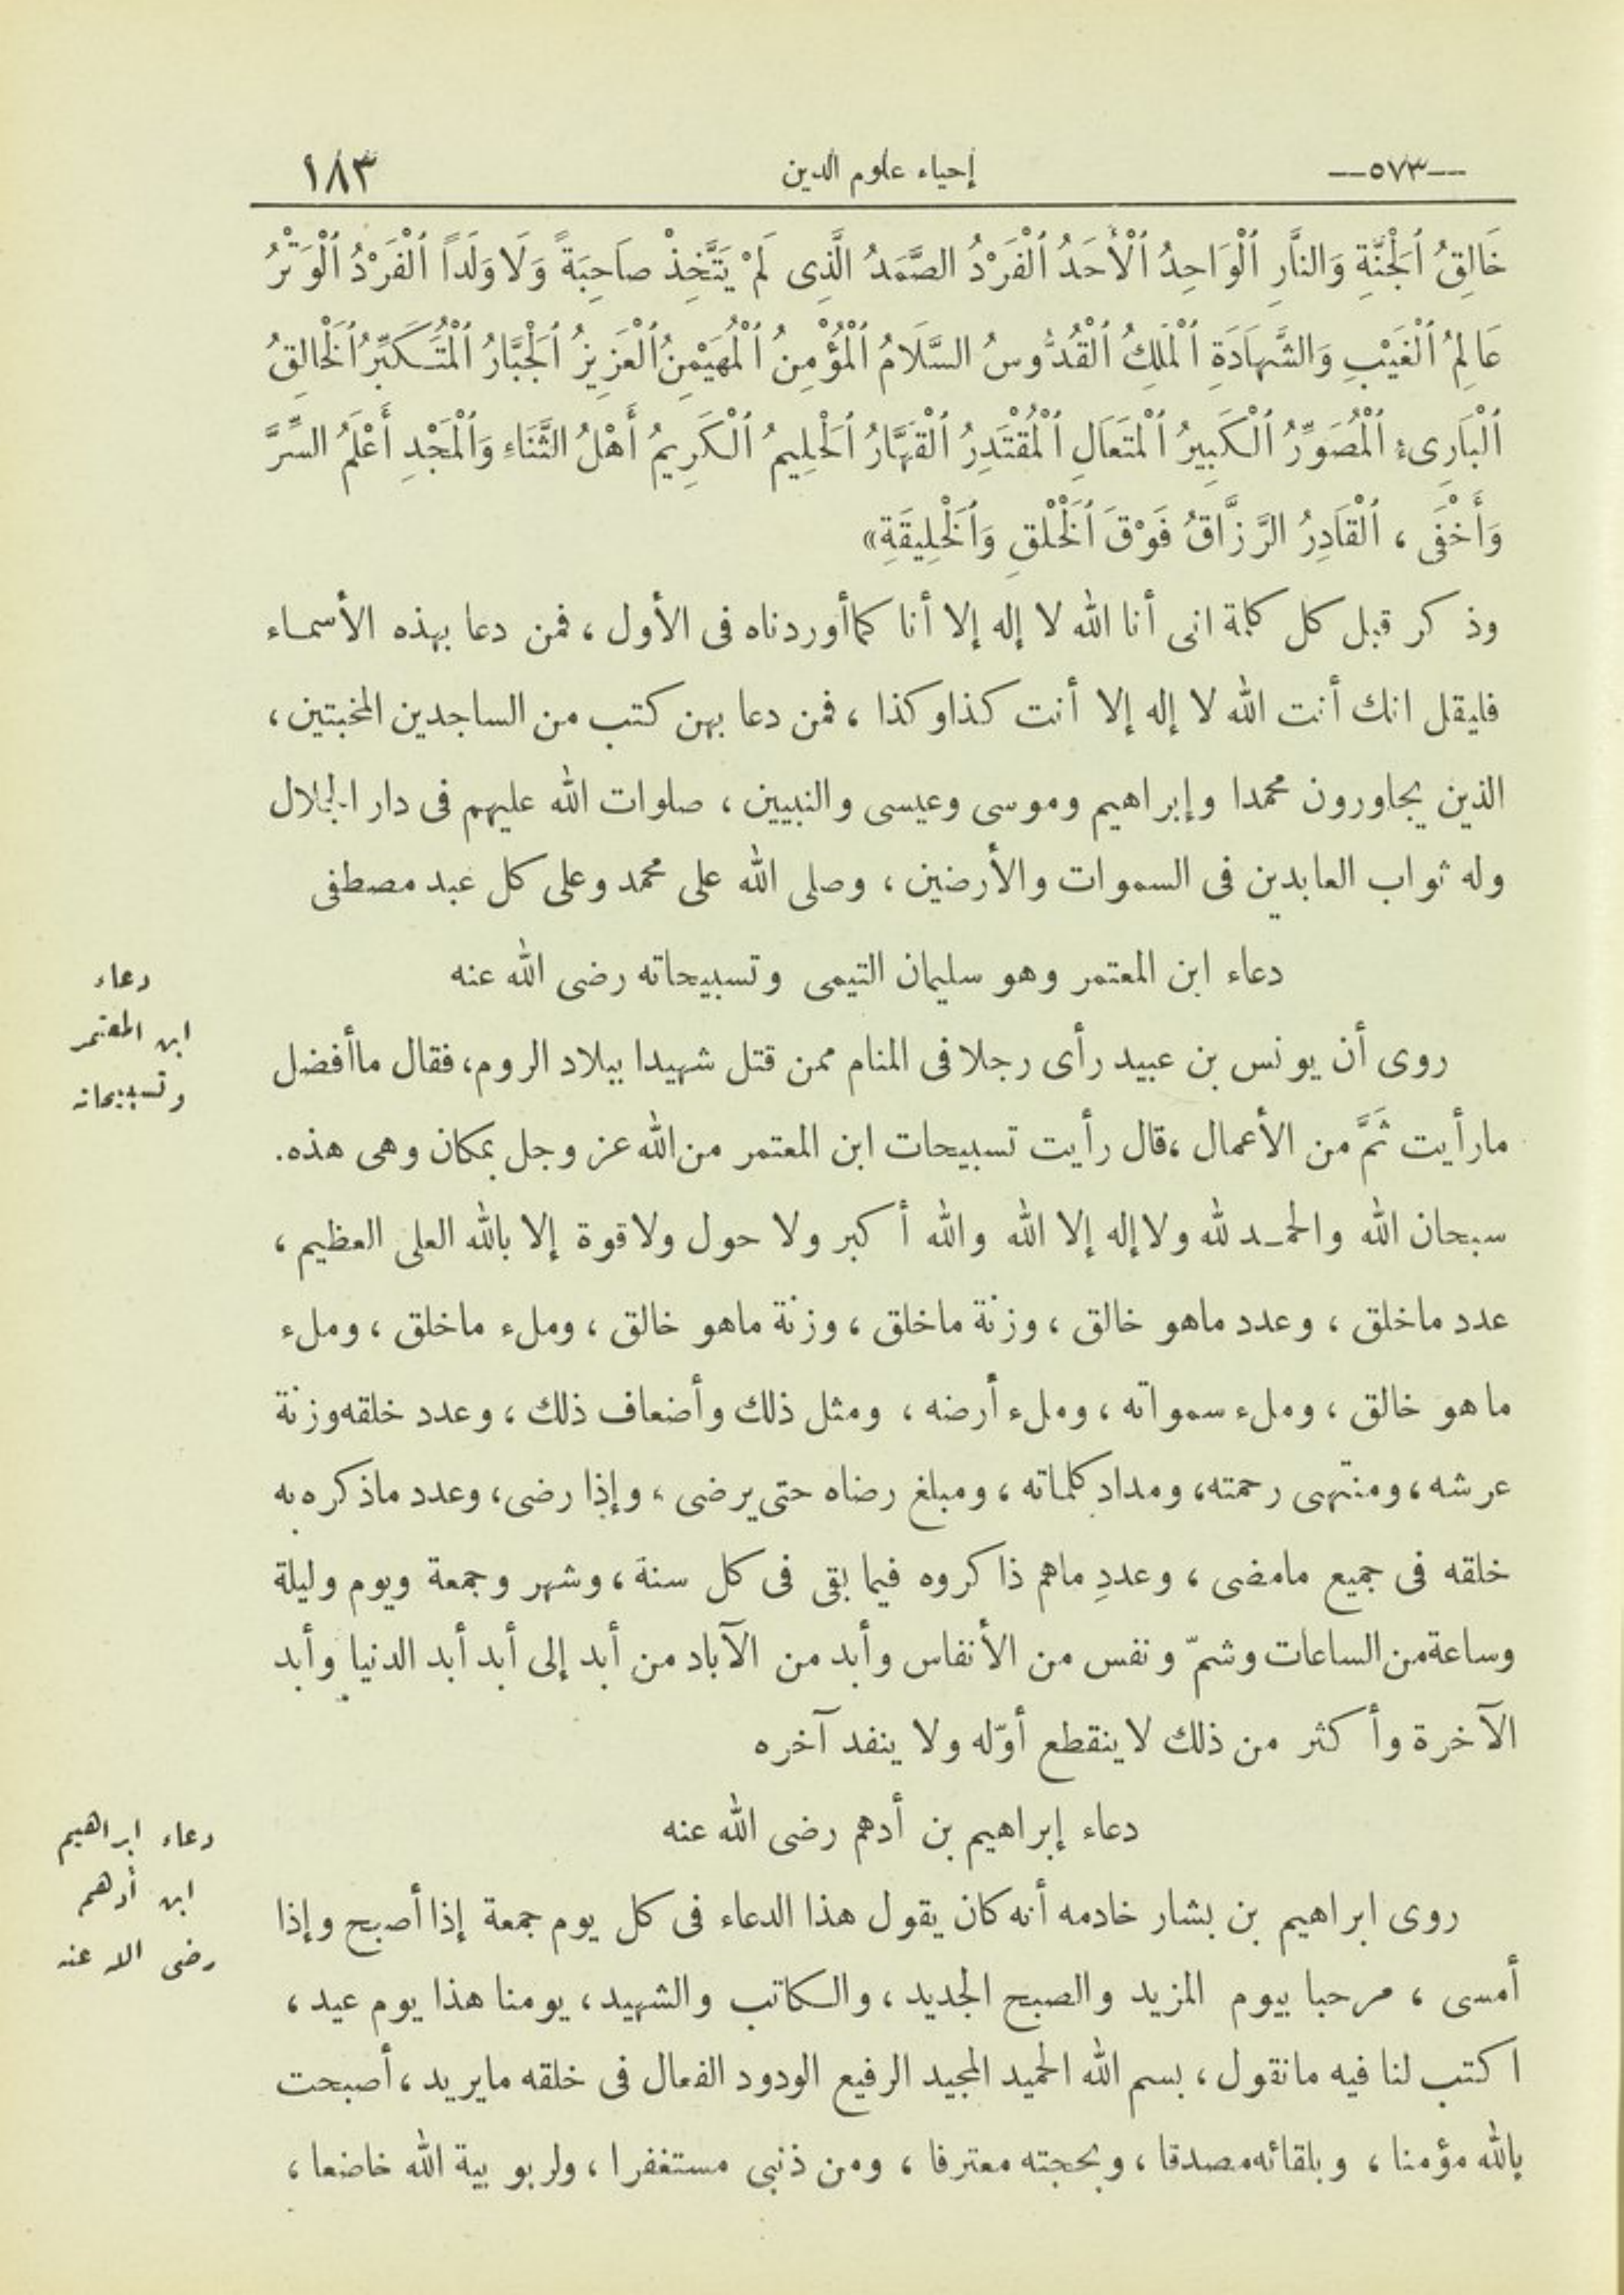 —٥٧٣— إحياء علوم الدين ١٨٣
خَالِقُ ٱلْجَنَّةِ وَالنَّارِ ٱلْوَاحِدُ ٱلْأَحَدُ ٱلْفَرْدُ الصَّمَدُ الَّذِى لَمْ يَتَّخِذْ صَاحِبَةً وَلَا وَلَدًا ٱلْفَرْدُ ٱلْوَتْرُ
عَالِمُ ٱلْغَيْبِ وَالشَّهَادَةِ ٱلْمَلِكُ ٱلْقُدُّوسُ السَّلَامُ ٱلْمُؤْمِنُ ٱلْمُهَيْمِنُ ٱلْعَزِيزُ ٱلْجَبَّارُ ٱلْمُتَكَبِّرُ ٱلْخَالِقُ
ٱلْبَارِىءُ ٱلْمُصَوِّرُ ٱلْكَبِيرُ ٱلْمُتَعَالِ ٱلْمُقْتَدِرُ ٱلْقَهَّارُ ٱلْحَلِيمُ ٱلْكَرِيمُ أَهْلُ الثَّنَاءِ وَٱلْمَجْدِ أَعْلَمُ السِّرَّ
وَأَخْفَى ، ٱلْقَادِرُ الرَّزَّاقُ فَوْقَ ٱلْخَلْقِ وَٱلْخَلِيقَةِ»
وذكر قبل كل كلمة انى أنا الله لا إله إلا أنا كما أوردناه فى الأول ، فمن دعا بهذه الأسماء
فليقل انك أنت الله لا إله إلا أنت كذا وكذا ، فمن دعا بهن كتب من الساجدين المخبتين ،
الذين يجاورون محمدا وإبراهيم وموسى وعيسى والنبيين ، صلوات الله عليهم فى دار الجلال
وله ثواب العابدين فى السموات والأرضين ، وصلى الله على محمد وعلى كل عبد مصطفى
دعاء ابن المعتمر وهو سليمان التيمى وتسبيحاته رضى الله عنه
دعاء
ابن المعتمر
وتسبيحاته
روى أن يونس بن عبيد رأى رجلا فى المنام ممن قتل شهيدا ببلاد الروم، فقال ما أفضل
ما رأيت ثَمَّ من الأعمال ، قال رأيت تسبيحات ابن المعتمر من الله عز وجل بمكان وهى هذه.
سبحان الله والحمد لله ولا إله إلا الله والله أكبر ولا حول ولا قوة إلا بالله العلى العظيم ،
عدد ما خلق ، وعدد ما هو خالق ، وزنة ما خلق ، وزنة ما هو خالق ، وملء ما خلق ، وملء
ما هو خالق ، وملء سمواته ، وملء أرضه ، ومثل ذلك وأضعاف ذلك ، وعدد خلقه وزنة
عرشه ، ومنتهى رحمته، ومداد كلماته ، ومبلغ رضاه حتى يرضى ، وإذا رضى، وعدد ما ذكره به
خلقه فى جميع ما مضى ، وعددِ ما هم ذاكروه فيما بقى فى كل سنة ، وشهر وجمعة ويوم وليلة
وساعة من الساعات وشمّ ونفس من الأنفاس وأبد من الآباد من أبد إلى أبد أبد الدنيا وأبد
الآخرة وأكثر من ذلك لا ينقطع أوّله ولا ينفد آخره
دعاء إبراهيم بن أدهم رضى الله عنه
دعاء ابراهيم
ابن أدهم
رضى الله عنه
روى ابراهيم بن بشار خادمه أنه كان يقول هذا الدعاء فى كل يوم جمعة إذا أصبح وإذا
أمسى ، مرحبا بيوم المزيد والصبح الجديد ، والكاتب والشهيد ، يومنا هذا يوم عيد ،
اكتب لنا فيه ما نقول ، بسم الله الحميد المجيد الرفيع الودود الفعال فى خلقه ما يريد ، أصبحت
بالله مؤمنا ، وبلقائه مصدقا ، وبحجته معترفا ، ومن ذنبى مستغفرا ، ولربوبية الله خاضعا ،